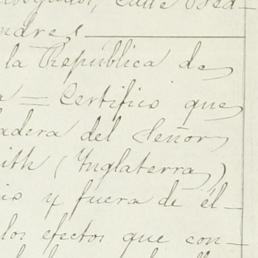 Calle Pedr-
ndres.
la República de
a = Certifico que
adera del Señor
ith (Inglaterra)
is y fuera de él-
los efectos que con-